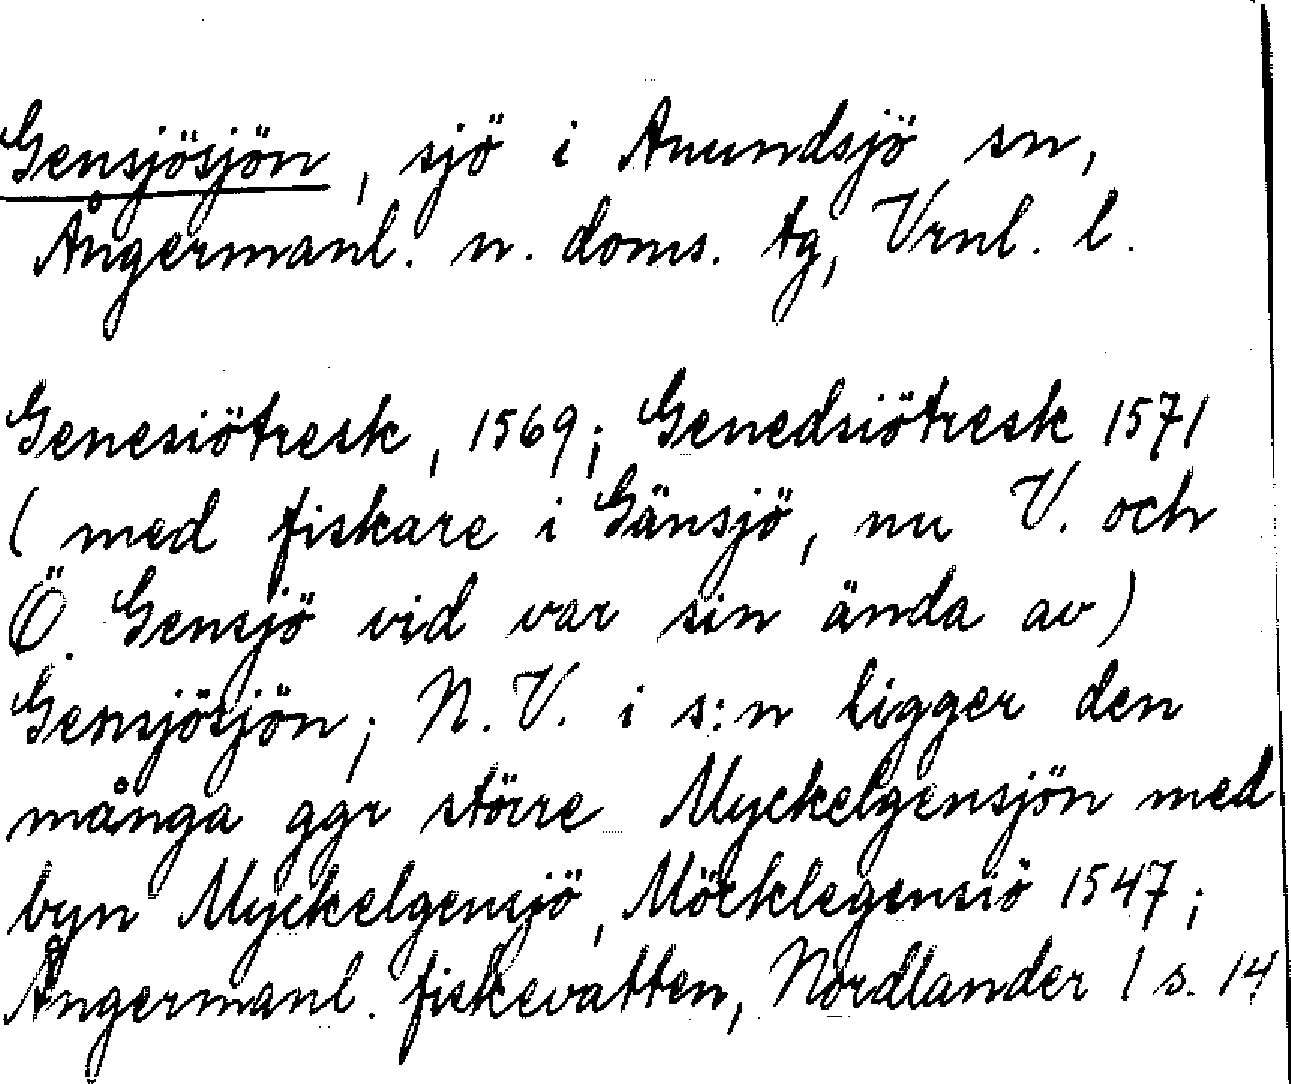 Gensjösjön, sjö i Anundsjö sn,
Ångermanl. n. doms. tg, Vrnl. l.
Genesiötresk, 1569; Genedsiötresk 1571
(med fiskare i Gänsjö, nu V. och
Ö. Gensjö vid var sin ända av)
Gensjösjön; N.V. i s:n ligger den
många ggr större Myckelgensjön med
byn Myckelgensjö, Möcklegensiö 1547;
Ångermanl. fiskevatten, Nordlander 1 s. 14